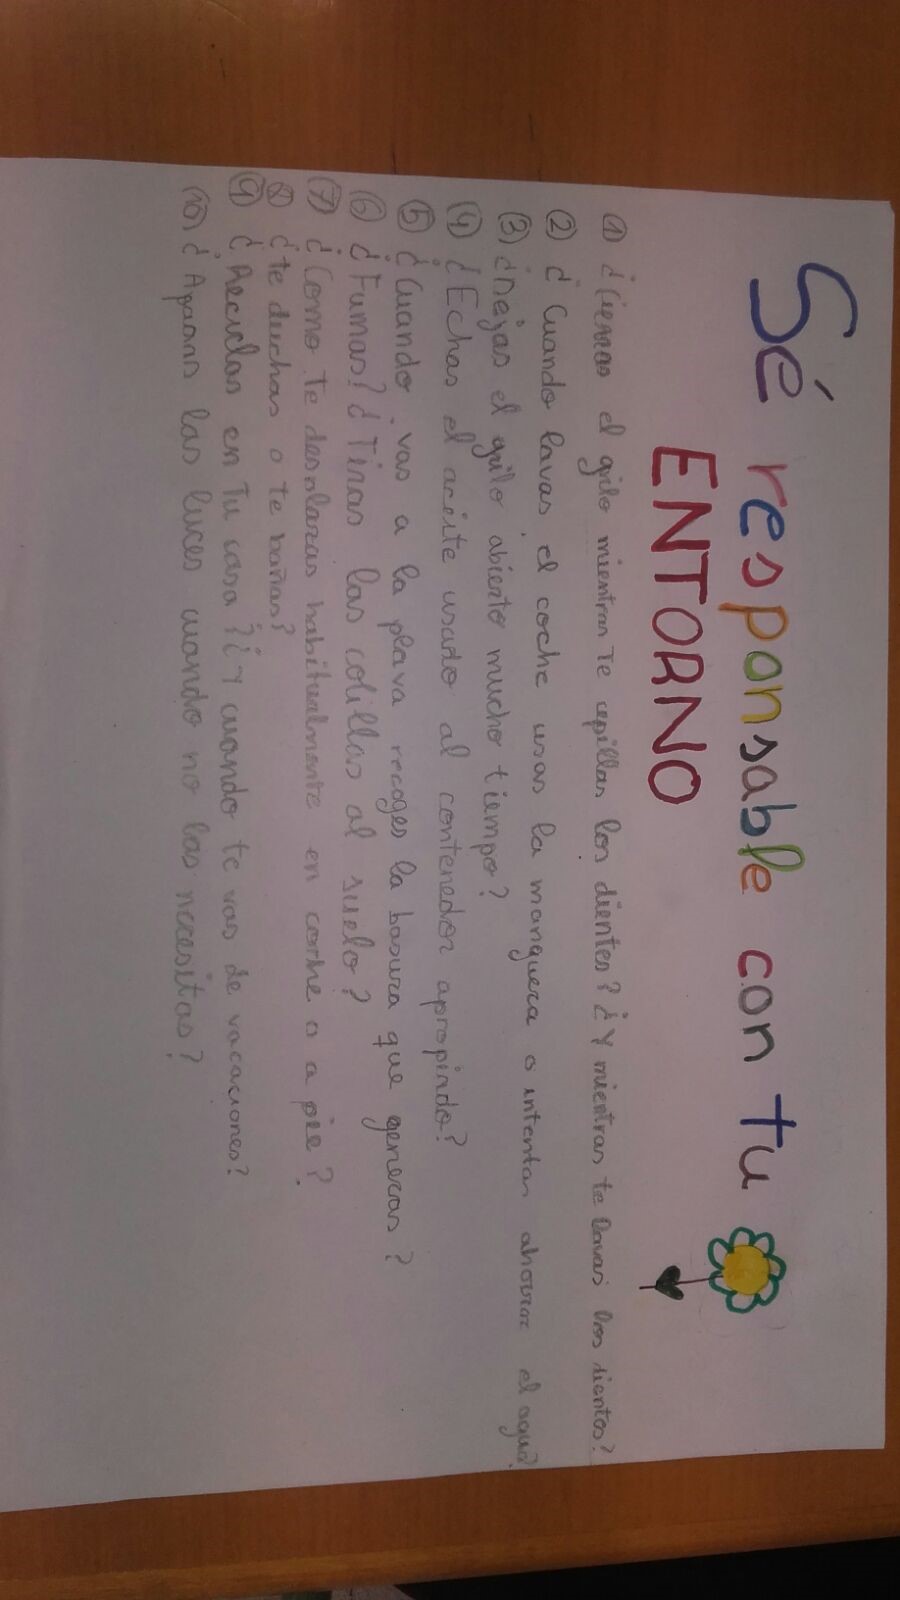 Sé responsable con tu
ENTORNO
① ¿Cierras el grifo mientras te cepillas los dientes? ¿Y mientras te lavas los dientes?
② ¿Cuando lavas el coche usas la manguera o intentas ahorrar el agua?
③ ¿Dejas el grifo abierto mucho tiempo?
④ ¿Echas el aceite usado al contenedor apropiado?
⑤ ¿Cuando vas a la playa recoges la basura que generas?
⑥ ¿Fumas? ¿Tiras las colillas al suelo?
⑦ ¿Como te desplazas habitualmente en coche o a pie?
⑧ ¿te duchas o te bañas?
⑨ ¿Reciclas en tu casa? ¿Y cuando te vas de vacaciones?
⑩ ¿Apagas las luces cuando no las necesitas?